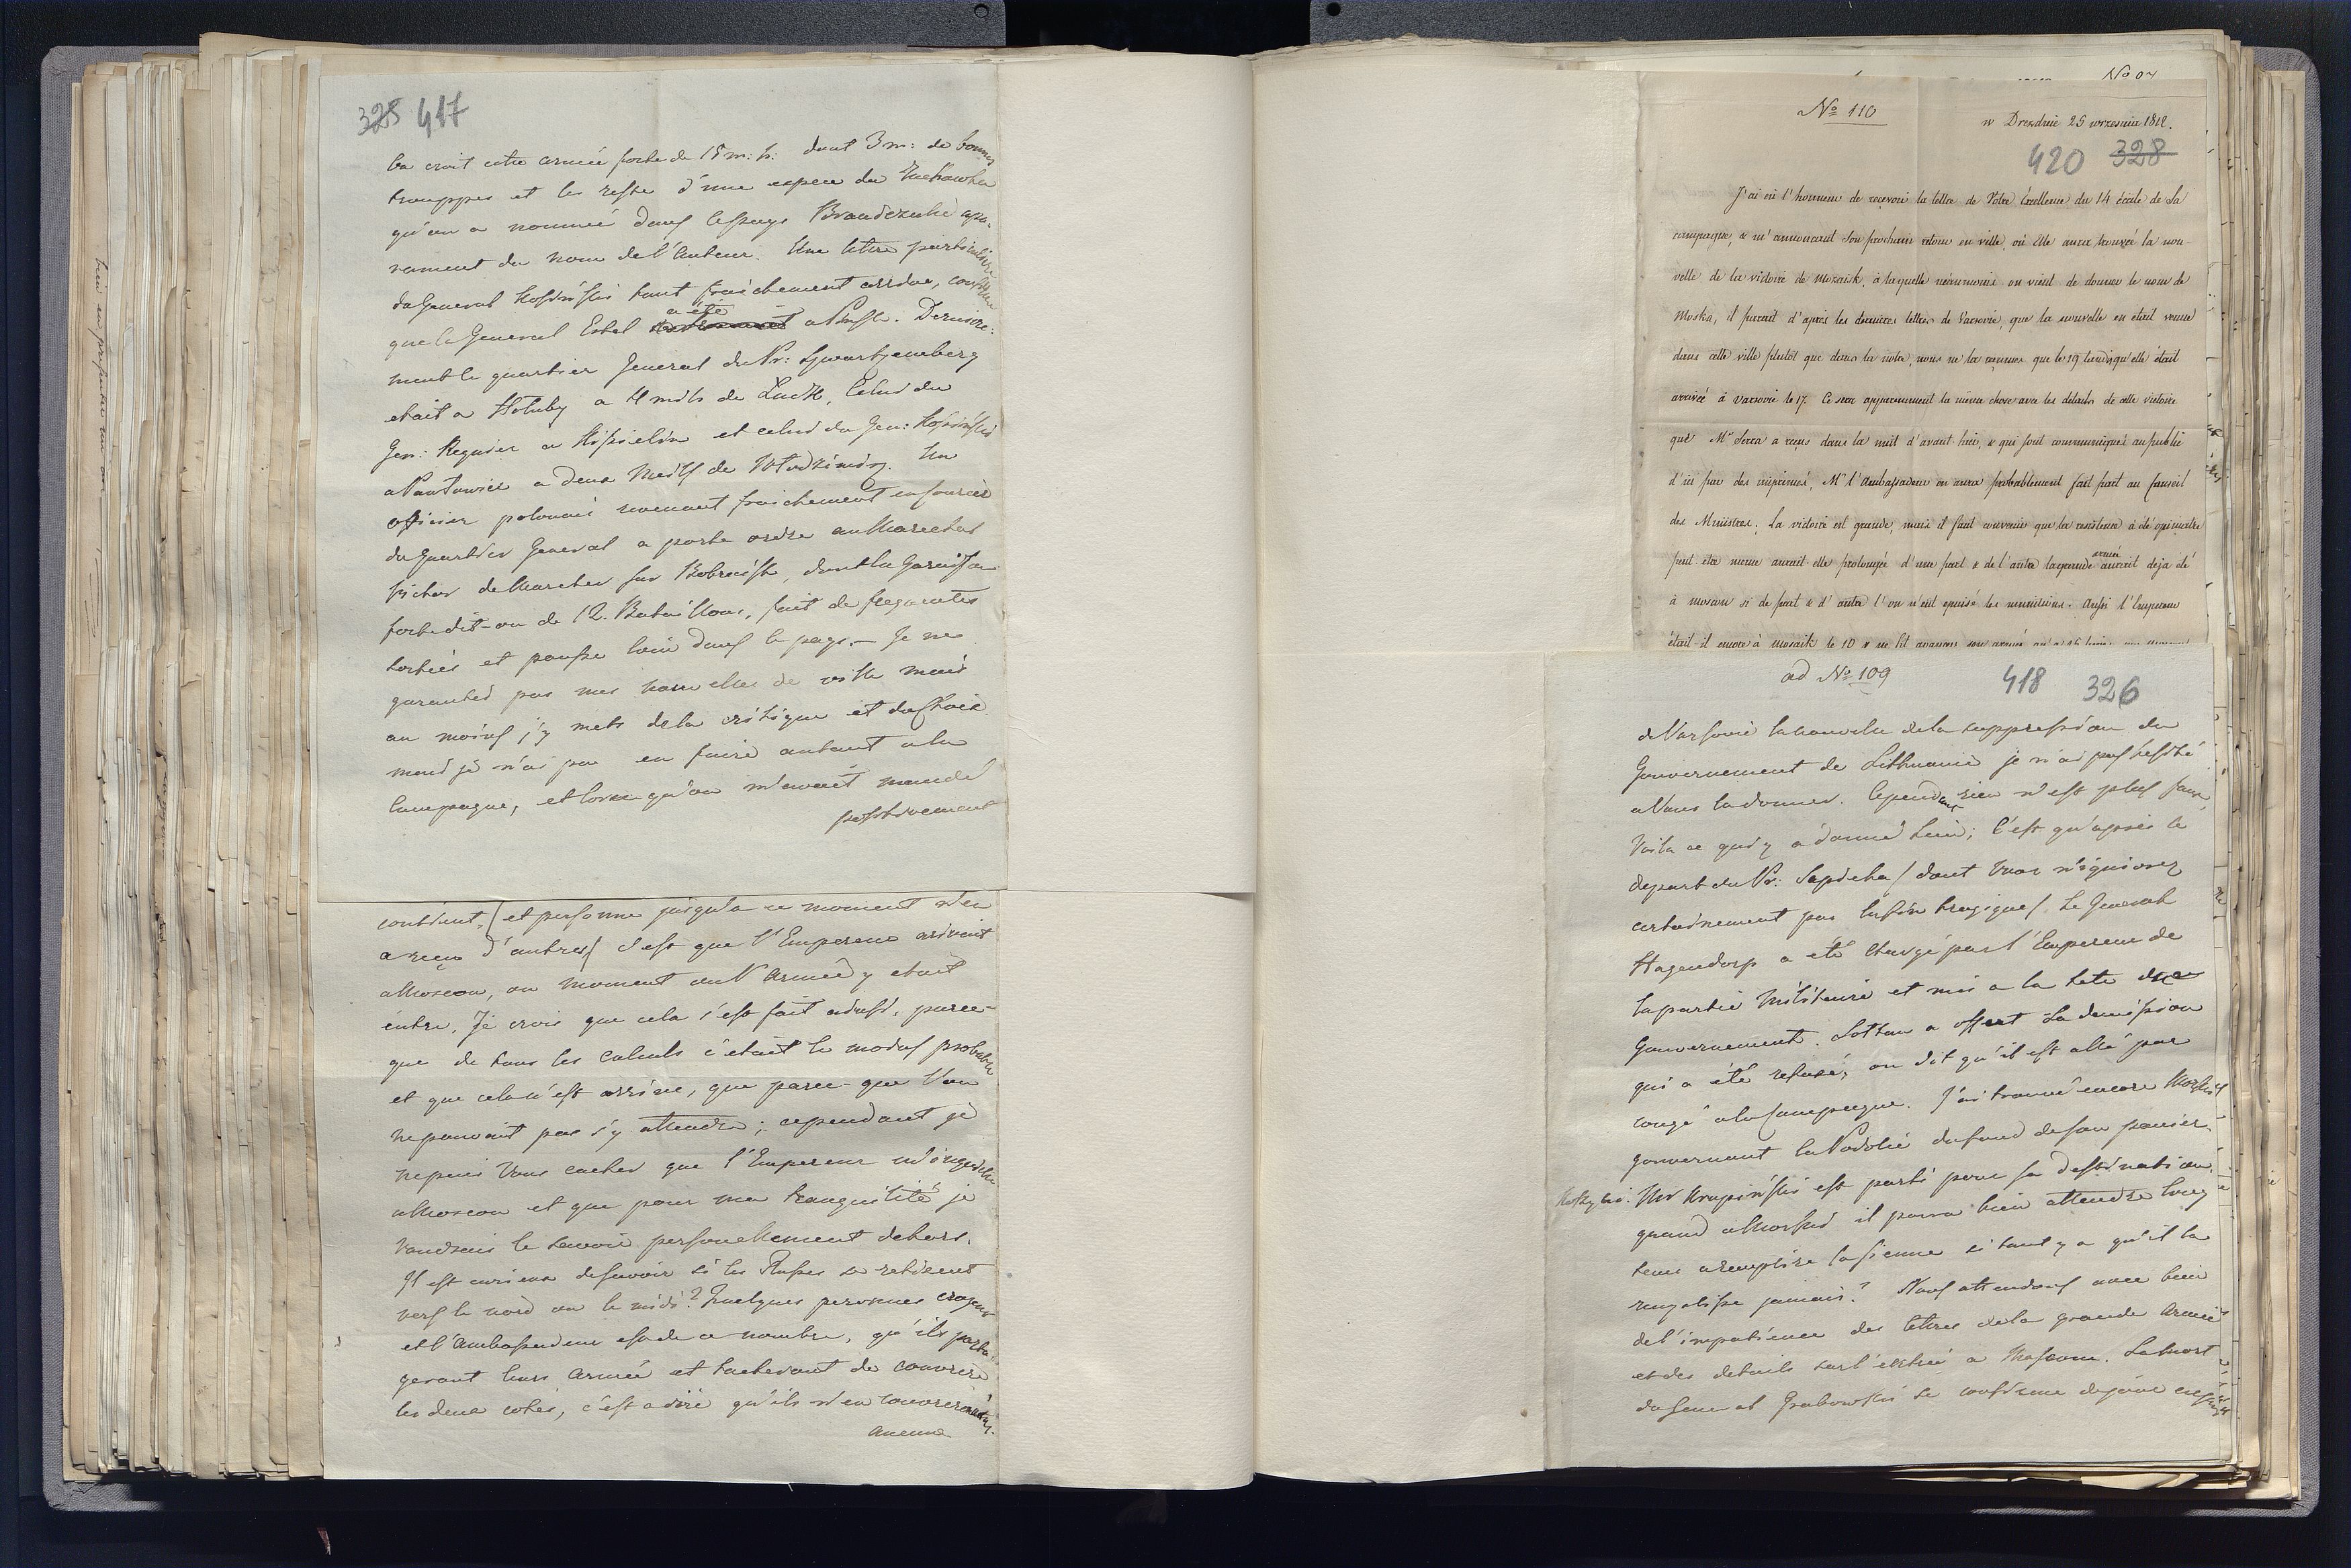 325 417
la croit cette armée forte de 15 m: h: dont 3 m: de bonnes
trouppes et le reste d'une espece de
qu'on a nommé dans le pays
nament du nom de l'Auteur. Une lettre particuliere
du General Kosinski tout fraichement arrivée, confirme
que le General Ertel a été a Pinsk. Derniere-
ment le quartier General du Pr: Schwartzemberg
etait a Hołuby a 4 mils de Łuck, Celui du
Gen: Regnier a Kisielin et celui du Gen: Kosinski
a a deux Meils de Włodzimirz. Un
officier polonais revenant fraichement en courier
du Quartier General a porté ordre au Marechal
Victor de Marcher sur Bobruisk, dont la Garnison
forte dit-on de 12. Bataillons, fait de frequentes
sorties et pousse loin dans le pays. – Je ne
garantis pas mes nouvelles de ville mais
au moins j'y mets de la critique et du choix.
mais je n'ai pu en faire autant a la
Campagne, et lorsqu'on m'avait mandé
positivement
contient, / et personne jusqu'a ce moment n'en
a reçu d'autres / c'est que l'Empereur arrivait
a Moscou, au moment ou l'Armée y etait
entré. Je crois que cela s'est fait ainsi, parce-
que de tous les calculs c'etait le moins probable
et que cela n'est arrivé, que parce-que l'on
ne pouvait pas s'y attendre; cependant je
ne puis Vous cacher que l'Empereur m'inquiete
a Moscou et que pour ma tranquilité je
voudrais le savoir personellement dehors.
Il est curieux de savoir si les Russes se retirent
vers le nord ou le midi? Quelques personnes croyent
et l'Ambassadeur est de ce nombre, qu'ils parta-
geront leur Armée et tacheront de couvrir
les deux cotés, c'est a dire qu'ils n'en couvriront
aucun
No 110
w Dreźnie 25 września 1812.
420 328
J'ai eu l'honneur de recevoir la lettre de Votre Excellence du 14 écrite de Sa
campagne, & m'annonçant Son prochain retour en ville, où Elle aura trouvée la nou-
velle de la victoire de Mozaisk, à laquelle néanmoins on vient de donner le nom de
Moska, il parait d'après les dernières lettres de Varsovie, que la nouvelle en était venue
dans cette ville plutôt que dans la nôtre, nous ne la connumes que le 19 tandis qu'elle était
arrivée à Varsovie le 17. Ce sera apparemment la même chose avec les détails de cette victoire
que Mr Serra a reçus dans la nuit d'avant-hier, & qui sont communiqués au public
d'ici par des imprimés, Mr l'Ambassadeur en aura probablement fait part au Conseil
des Ministres. La victoire est grande, mais il faut convenir que la resistence a été opiniatre
peut-être meme aurait-elle prolongée d'une part & de l'autre la grande armée aurait deja été
à moscou si de part & d'autre l'on n'eut epuisé les munitions. Aussi l'Empereur
était-il encore à Mosaisk le 10 & ne fit avancer son armée
ad No 109
418 326
de Varsovie la nouvelle de la suppression du
Gouvernement de Lithuanie je n'ai pas hesité
a Vous la donner. Cependant rien n'est plus faux,
Voila ce qui y a donné lieu; C'est qu'apres le
depart du Pr: Sapieha / dont Vous n'ignorez
certainement pas la fin tragique / Le General
Hogendorp a été chargé par l'Empereur de
la partie Militaire et mis a la tete du
Gouvernement. Sołtan a offert sa demission
qui a été refusée, on dit qu'il est allé par
congé a la Campagne. J'ai trouvé encore Morski
gouvernant la Podolie du fond de son panier.
Mr Krupinski est parti pour sa destination,
quand a Morski il pourra bien attendre long
tems a remplir la sienne si tant y a qu'il la
remplisse jamais? Nous attendons avec bien
de l'impatience des lettres de la grande Armée
et des details sur l'entrée a Moscou. La mort
du General Grabowski se confirme